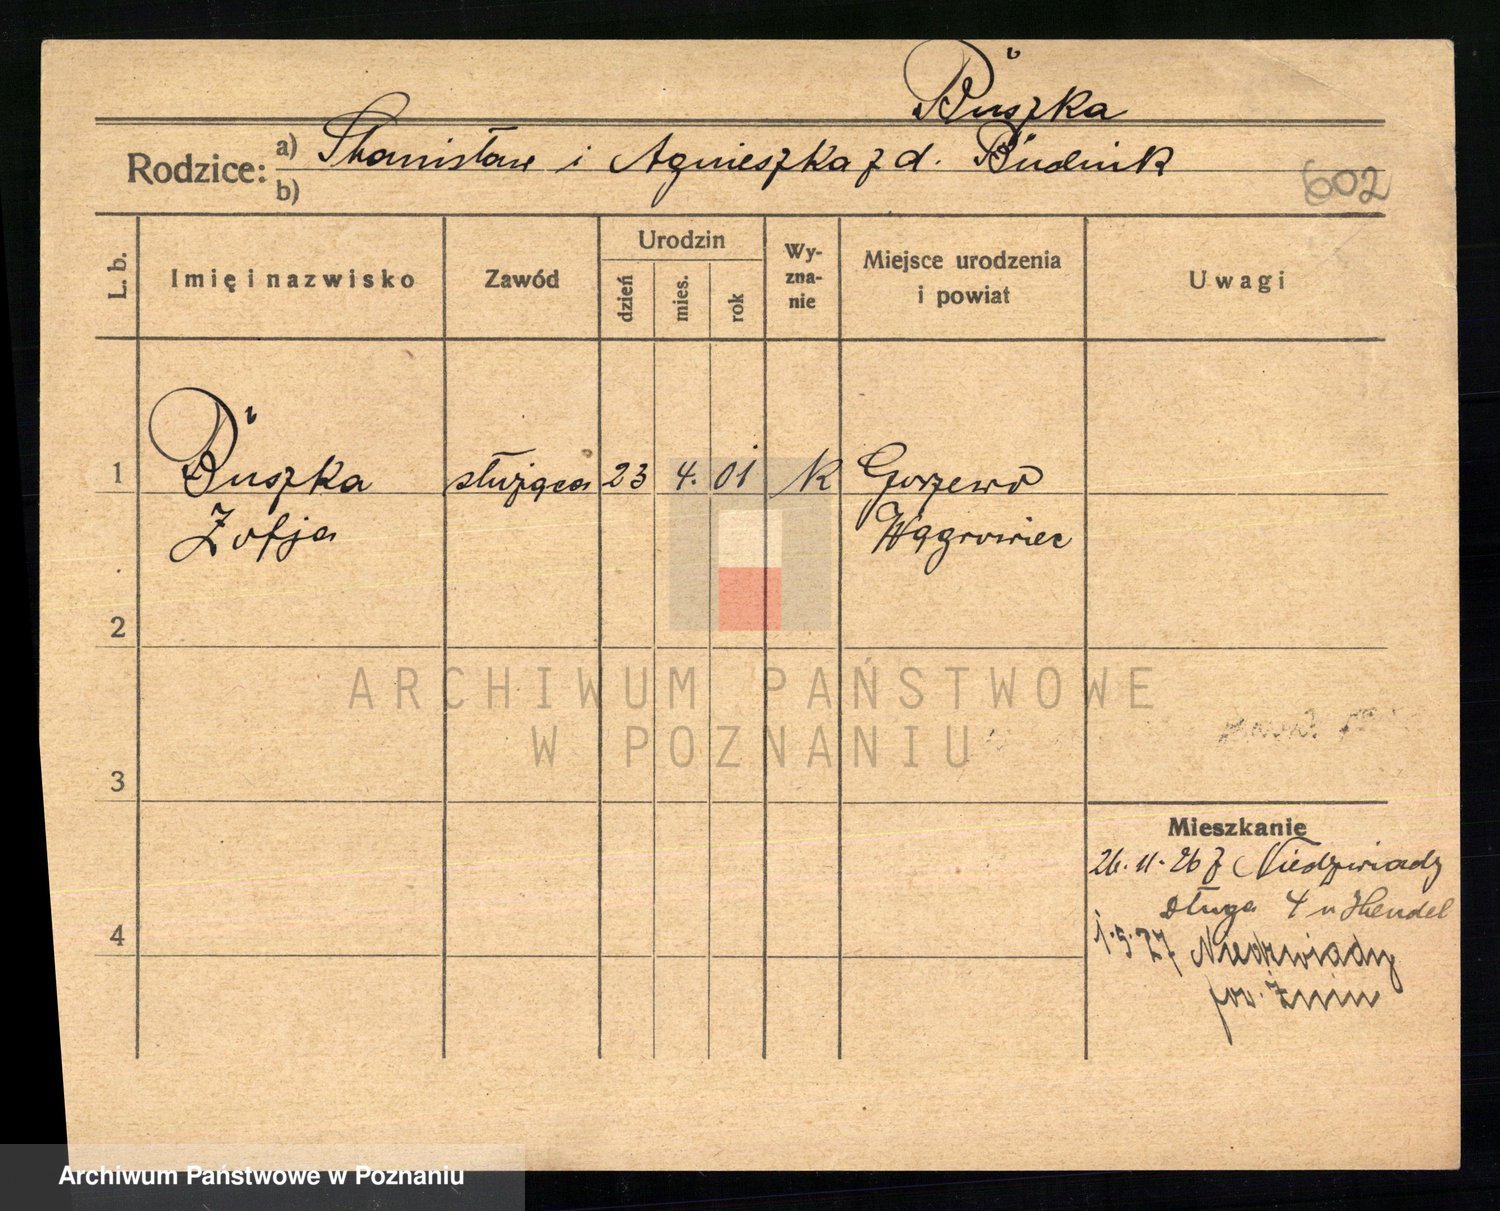 Buszka
Rodzice: a) Stanisław i Agnieszka z d. Budnik
b)
602
L. b.
Imię i nazwisko
Zawód
Urodzin
dzień
mies.
rok
Wy-
zna-
nie
Miejsce urodzenia
i powiat
Uwagi
1 Buszka służąca 23 4. 01 K Gorzewo
Zofja Wągrowiec
2
3
4
Mieszkanie
26.11.26 z Niedzwiady
Długa 4 u Hendel
1.5.27 Niedzwiady
pow. Żnin
ARCHIWUM PAŃSTWOWE
W POZNANIU
Archiwum Państwowe w Poznaniu